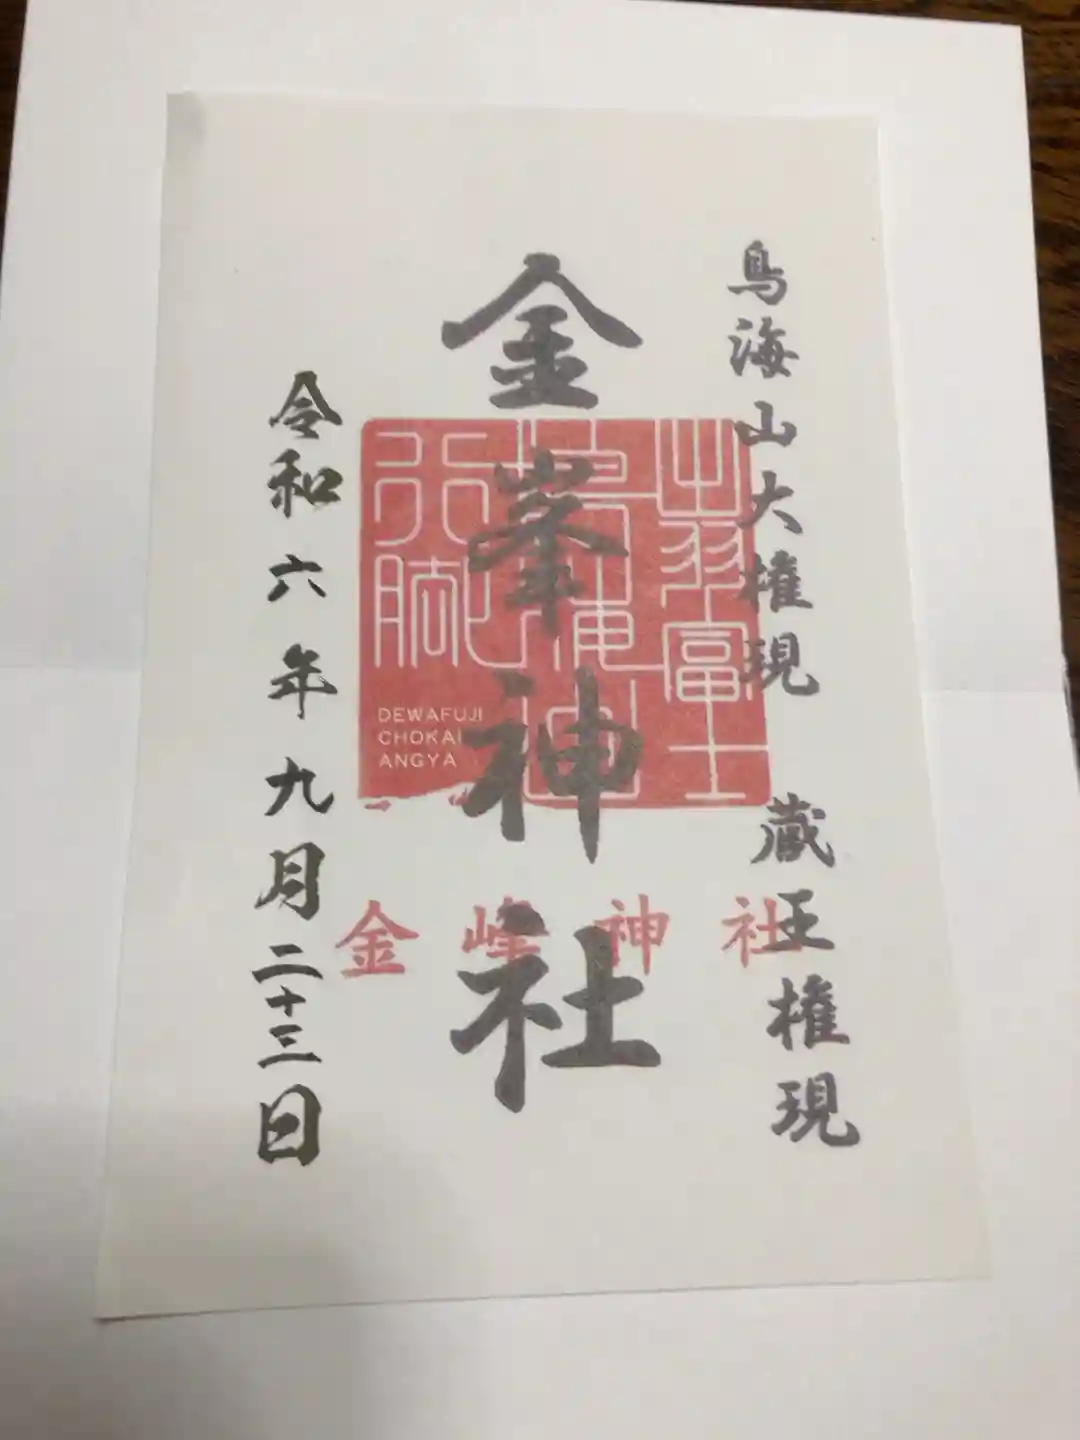 鳥海山大権現　蔵王権現
金峯神社
令和六年九月二十三日
出羽富士
鳥海山
行脚
DEWAFUJI
CHOKAI
ANGYA
金峰神社